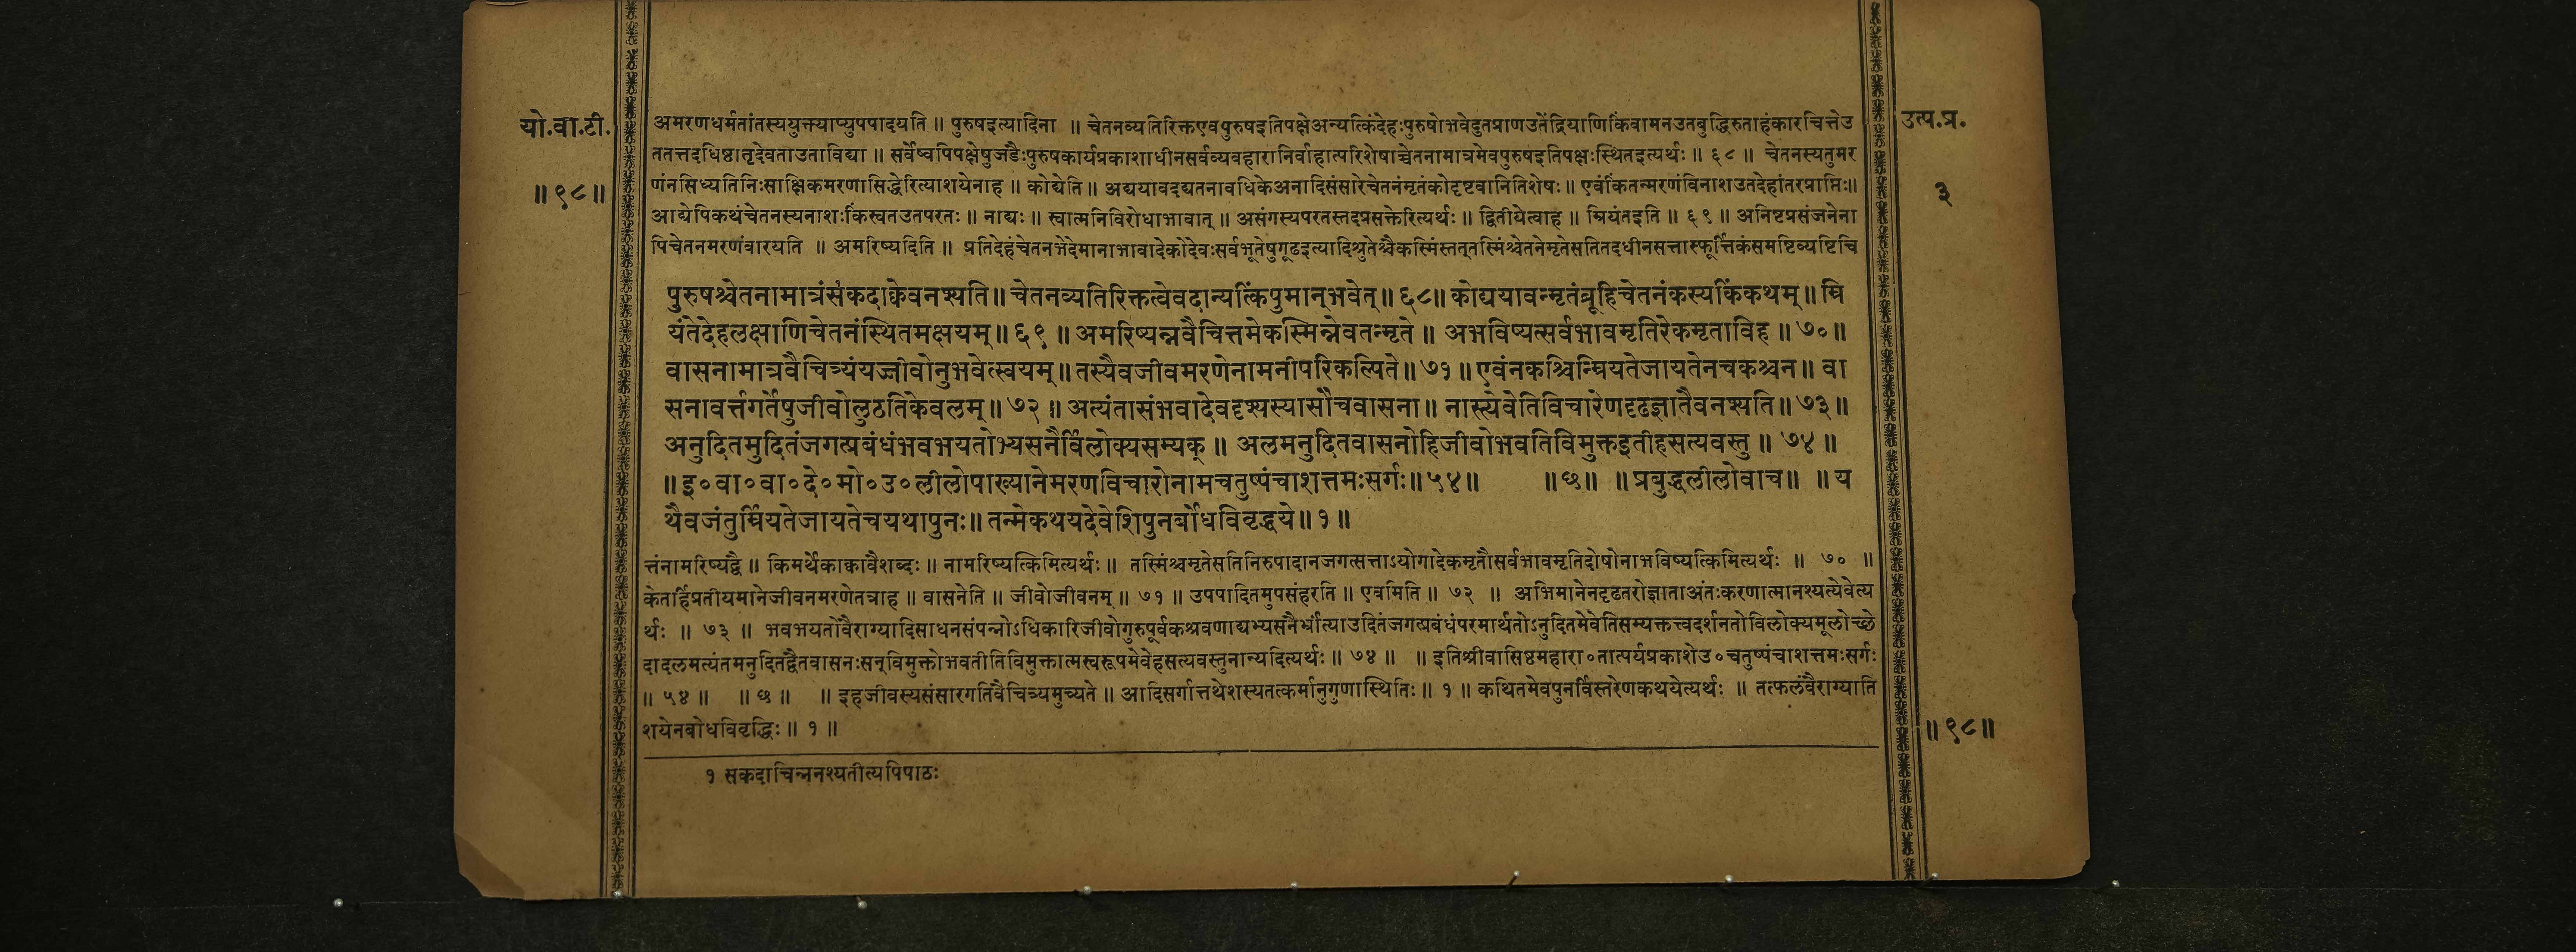 यो.वा.टी.
॥९८॥
अमरणधर्मतांतस्ययुक्त्याप्युपपादयति ॥ पुरुषइत्यादिना ॥ चेतनव्यतिरिक्तएवपुरुषइतिपक्षेअन्यत्किंदेहःपुरुषोभवेदुतप्राणउतेंद्रियाणिकिंवामनउतबुद्धिरुताहंकारचित्तेउ
ततत्तदधिष्ठातृदेवताउताविद्या ॥ सर्वेष्वपिपक्षेषुजडैःपुरुषकार्यप्रकाशाधीनसर्वव्यवहारानिर्वाहात्परिशेषाच्चेतनामात्रमेवपुरुषइतिपक्षःस्थितइत्यर्थः ॥ ६८ ॥ चेतनस्यतुमर
णंनसिध्यतिनिःसाक्षिकमरणासिद्धेरित्याशयेनाह ॥ कोद्येति ॥ अद्ययावदद्यतनावधिकेअनादिसंसारेचेतनंमृतंकोदृष्टवानितिशेषः ॥ एवंकिंतन्मरणंविनाशउतदेहांतरप्राप्तिः॥
आद्येपिकथंचेतनस्यनाशःकिंस्वतउतपरतः ॥ नाद्यः ॥ स्वात्मनिविरोधाभावात् ॥ असंगस्यपरतस्तदप्रसक्तेरित्यर्थः ॥ द्वितीयेत्वाह ॥ म्रियंतइति ॥ ६९ ॥ अनिष्टप्रसंजनेना
पिचेतनमरणंवारयति ॥ अमरिष्यदिति ॥ प्रतिदेहंचेतनभेदेमानाभावादेकोदेवःसर्वभूतेषुगूढइत्यादिश्रुतेश्चैकस्मिंस्तत्तस्मिंश्चेतनेमृतेसतितदधीनसत्तास्फूर्त्तिकंसमष्टिव्यष्टिचि
पुरुषश्चेतनामात्रंसंकदाक्केवनश्यति॥ चेतनव्यतिरिक्तत्वेवदान्यत्किंपुमान्भवेत्॥६८॥ कोद्ययावन्मृतंब्रूहिचेतनंकस्यकिंकथम्॥ म्रि
यंतेदेहलक्षाणिचेतनंस्थितमक्षयम्॥६९॥ अमरिष्यन्नवैचित्तमेकस्मिन्नेवतन्मृते॥ अभविष्यत्सर्वभावमृतिरेकमृताविह॥७०॥
वासनामात्रवैचित्र्यंयज्जीवोनुभवेत्स्वयम्॥ तस्यैवजीवमरणेनामनीपरिकल्पिते॥७१॥ एवंनकश्चिन्म्रियतेजायतेनचकश्चन॥ वा
सनावर्त्तगर्तेषुजीवोलुठतिकेवलम्॥७२॥ अत्यंतासंभवादेवदृश्यस्यासौचवासना॥ नास्त्येवेतिविचारेणदृढज्ञातैवनश्यति॥७३॥
अनुदितमुदितंजगत्प्रबंधंभवभयतोभ्यसनैर्विलोक्यसम्यक्॥ अलमनुदितवासनोहिजीवोभवतिविमुक्तइतीहसत्यवस्तु॥७४॥
॥इ०वा०वा०दे०मो०उ०लीलोपाख्यानेमरणविचारोनामचतुष्पंचाशत्तमःसर्गः॥५४॥ ॥छ॥ ॥प्रबुद्धलीलोवाच॥ ॥य
थैवजंतुर्म्रियतेजायतेचयथापुनः॥ तन्मेकथयदेवेशिपुनर्बोधविवृद्धये॥१॥
त्तंनामरिष्यद्वै ॥ किमर्थेकाक्वावैशब्दः ॥ नामरिष्यत्किमित्यर्थः ॥ तस्मिंश्चमृतेसतिनिरुपादानजगत्सत्ताऽयोगादेकमृतौसर्वभावमृतिदोषोनाभविष्यत्किमित्यर्थः ॥ ७० ॥
केतर्हिप्रतीयमानेजीवनमरणेतत्राह ॥ वासनेति ॥ जीवोजीवनम् ॥ ७१ ॥ उपपादितमुपसंहरति ॥ एवमिति ॥ ७२ ॥ अभिमानेनदृढतरोज्ञाताअंतःकरणात्मानश्यत्येवेत्य
र्थः ॥ ७३ ॥ भवभयतोवैराग्यादिसाधनसंपन्नोऽधिकारिजीवोगुरुपूर्वकश्रवणाद्यभ्यसनैर्भ्रांत्याउदितंजगत्प्रबंधंपरमार्थतोऽनुदितमेवेतिसम्यक्तत्त्वदर्शनतोविलोक्यमूलोच्छे
दादलमत्यंतमनुदितद्वैतवासनःसन्विमुक्तोभवतीतिविमुक्तात्मस्वरूपमेवेहसत्यवस्तुनान्यदित्यर्थः ॥ ७४ ॥ ॥ इतिश्रीवासिष्ठमहारा०तात्पर्यप्रकाशेउ०चतुष्पंचाशत्तमःसर्गः
॥ ५४ ॥ ॥ छ ॥ ॥ इहजीवस्यसंसारगतिवैचित्र्यमुच्यते ॥ आदिसर्गात्तथेशस्यतत्कर्मानुगुणास्थितिः ॥ १ ॥ कथितमेवपुनर्विस्तरेणकथयेत्यर्थः ॥ तत्फलंवैराग्याति
शयेनबोधविवृद्धिः ॥ १ ॥
१ सकदाचिन्ननश्यतीत्यपिपाठः
उत्प.प्र.
३
॥९८॥